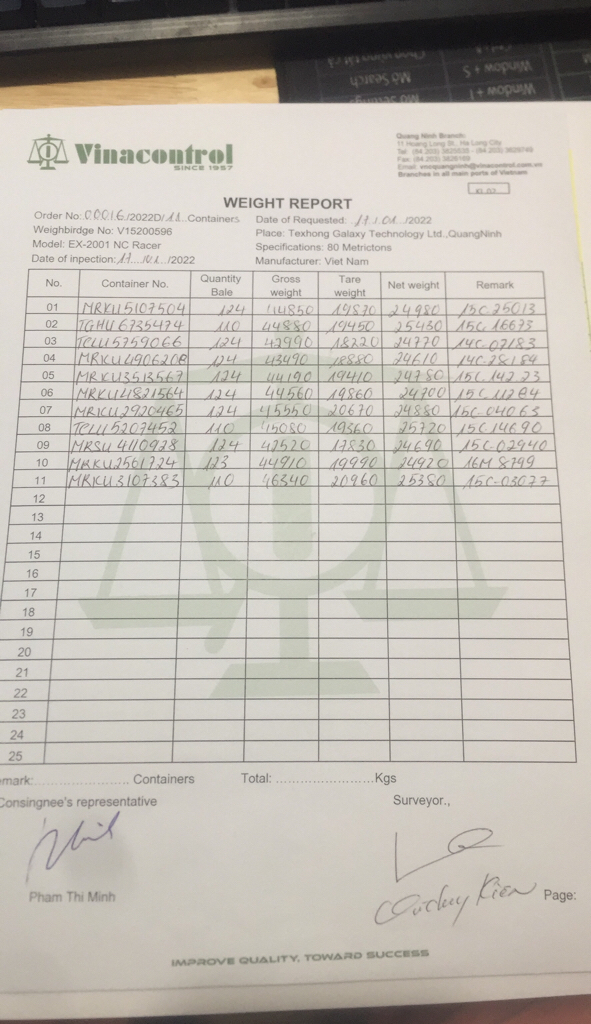 Window + S
Mở Search
Window + I
Vinacontrol
SINCE 1957
Quang Ninh Branch:
11 Hoang Long St., Ha Long City
Branches in all main ports of Vietnam
WEIGHT REPORT
Order No: 00016/2022D/11 Containers Date of Requested: 17/01/2022
Weighbirdge No: V15200596 Place: Texhong Galaxy Technology Ltd.,QuangNinh
Model: EX-2001 NC Racer Specifications: 80 Metrictons
Date of inpection: 17/01/2022 Manufacturer: Viet Nam
No. Container No. Quantity Bale Gross weight Tare weight Net weight Remark
01 MRKU5107504 124 44850 19870 24980 15C-25013
02 TGHU6735474 110 44880 19450 25430 15C 16673
03 TCLU5759066 124 42990 18220 24770 14C-07183
04 124 43490 18880 24610 14C-28184
05 MRKU3513567 124 44190 19410 24780 15C-142 23
06 MRKU4821564 124 44560 19860 24700
07 MRKU2920465 124 45550 20670 24880 15C-04063
08 TCLU5207452 110 45080 19360 25720 15C14690
09 MRSU4110928 124 42520 17830 24690 15C-02940
10 MRKU2561724 123 44910 19990 24920 16M 8799
11 MRKU3107383 110 46340 20960 25380 15C-03077
12
13
14
15
16
17
18
19
20
21
22
23
24
25
emark: Containers Total: Kgs
Consingnee's representative Surveyor.,
Pham Thi Minh
Kien Page:
IMPROVE QUALITY, TOWARD SUCCESS